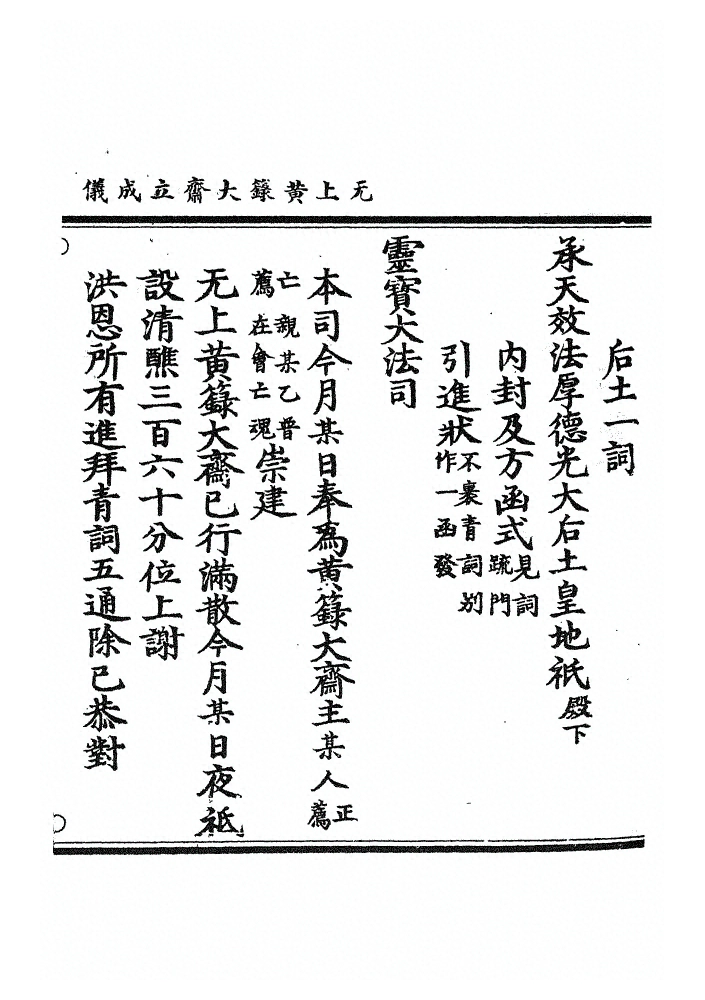 无上黃籙大齋立成儀
后土一詞
承天效法厚德光大后土皇地祇殿下
内封及方函式見詞疏門
引進狀不裹青詞別作一函發
靈寶大法司
本司今月某日奉爲黃籙大齋主某人正薦
亡親某乙普薦在會亡魂崇建
无上黃籙大齋已行滿散今月某日夜祗
設清醮三百六十分位上謝
洪恩所有進拜青詞五通除已恭對